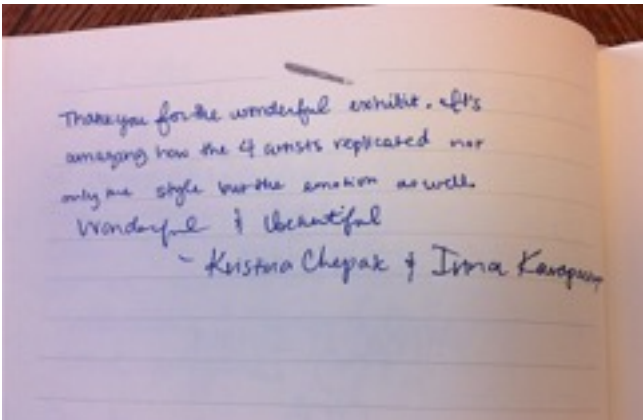 Thank you for the wonderful exhibit. It's
amazing how the 4 artists replicated not
only the style but the emotion as well.
Wonderful & beautiful
- Kristina Chepak & Irina